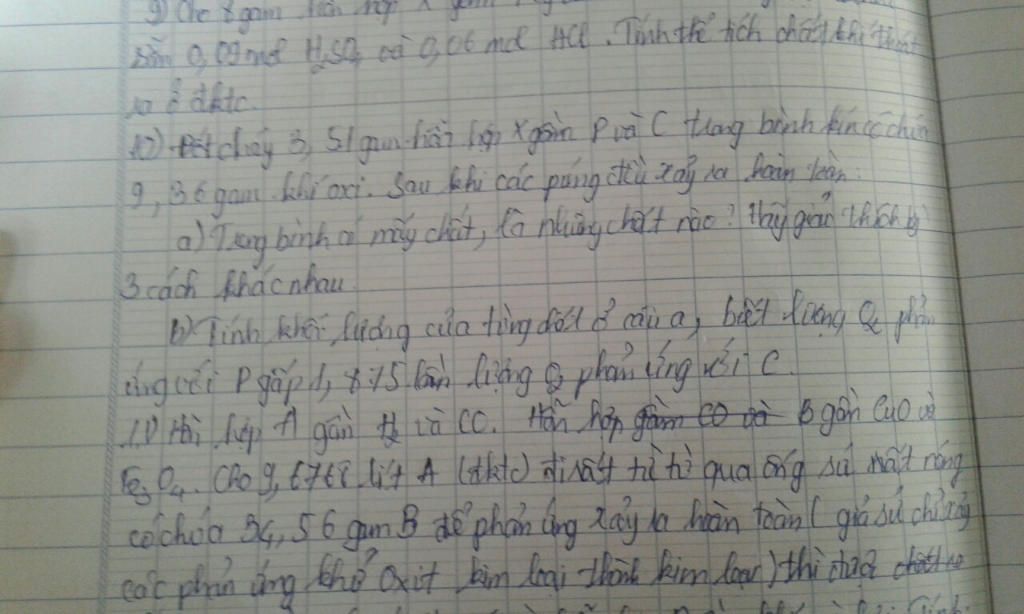 9) Cho 8 gam hỗn hợp X gồm
sẵn 0,09 mol H2SO4 và 0,06 mol HCl. Tính thể tích chất khí thoát
ra ở đktc.
10) Đốt cháy 3,51 gam hỗn hợp X gồm P và C trong bình kín có chứa
9,36 gam khí oxi. Sau khi các pứng đều xảy ra hoàn toàn:
a) Trong bình có mấy chất, là những chất nào? Hãy giải thích bằng
3 cách khác nhau.
b) Tính khối lượng của từng chất ở câu a, biết lượng O2 phản
ứng với P gấp 1,875 lần lượng O2 phản ứng với C.
11) Hỗn hợp A gồm H2 và CO. Hỗn hợp B gồm CuO và
Fe3O4. Cho 9,6768 lít A (đktc) đi rất từ từ qua ống sứ mắt nóng
có chứa 34,56 gam B để phản ứng xảy ra hoàn toàn (giả sử chỉ xảy
các phản ứng khử oxit kim loại thành kim loại) thì